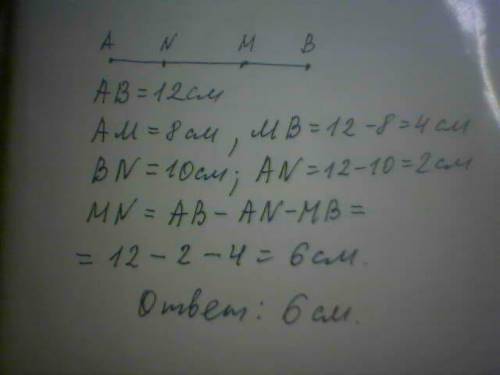 A N M B
AB = 12 см
AM = 8 см, MB = 12 - 8 = 4 см
BN = 10 см; AN = 12 - 10 = 2 см
MN = AB - AN - MB =
= 12 - 2 - 4 = 6 см.
Ответ: 6 см.